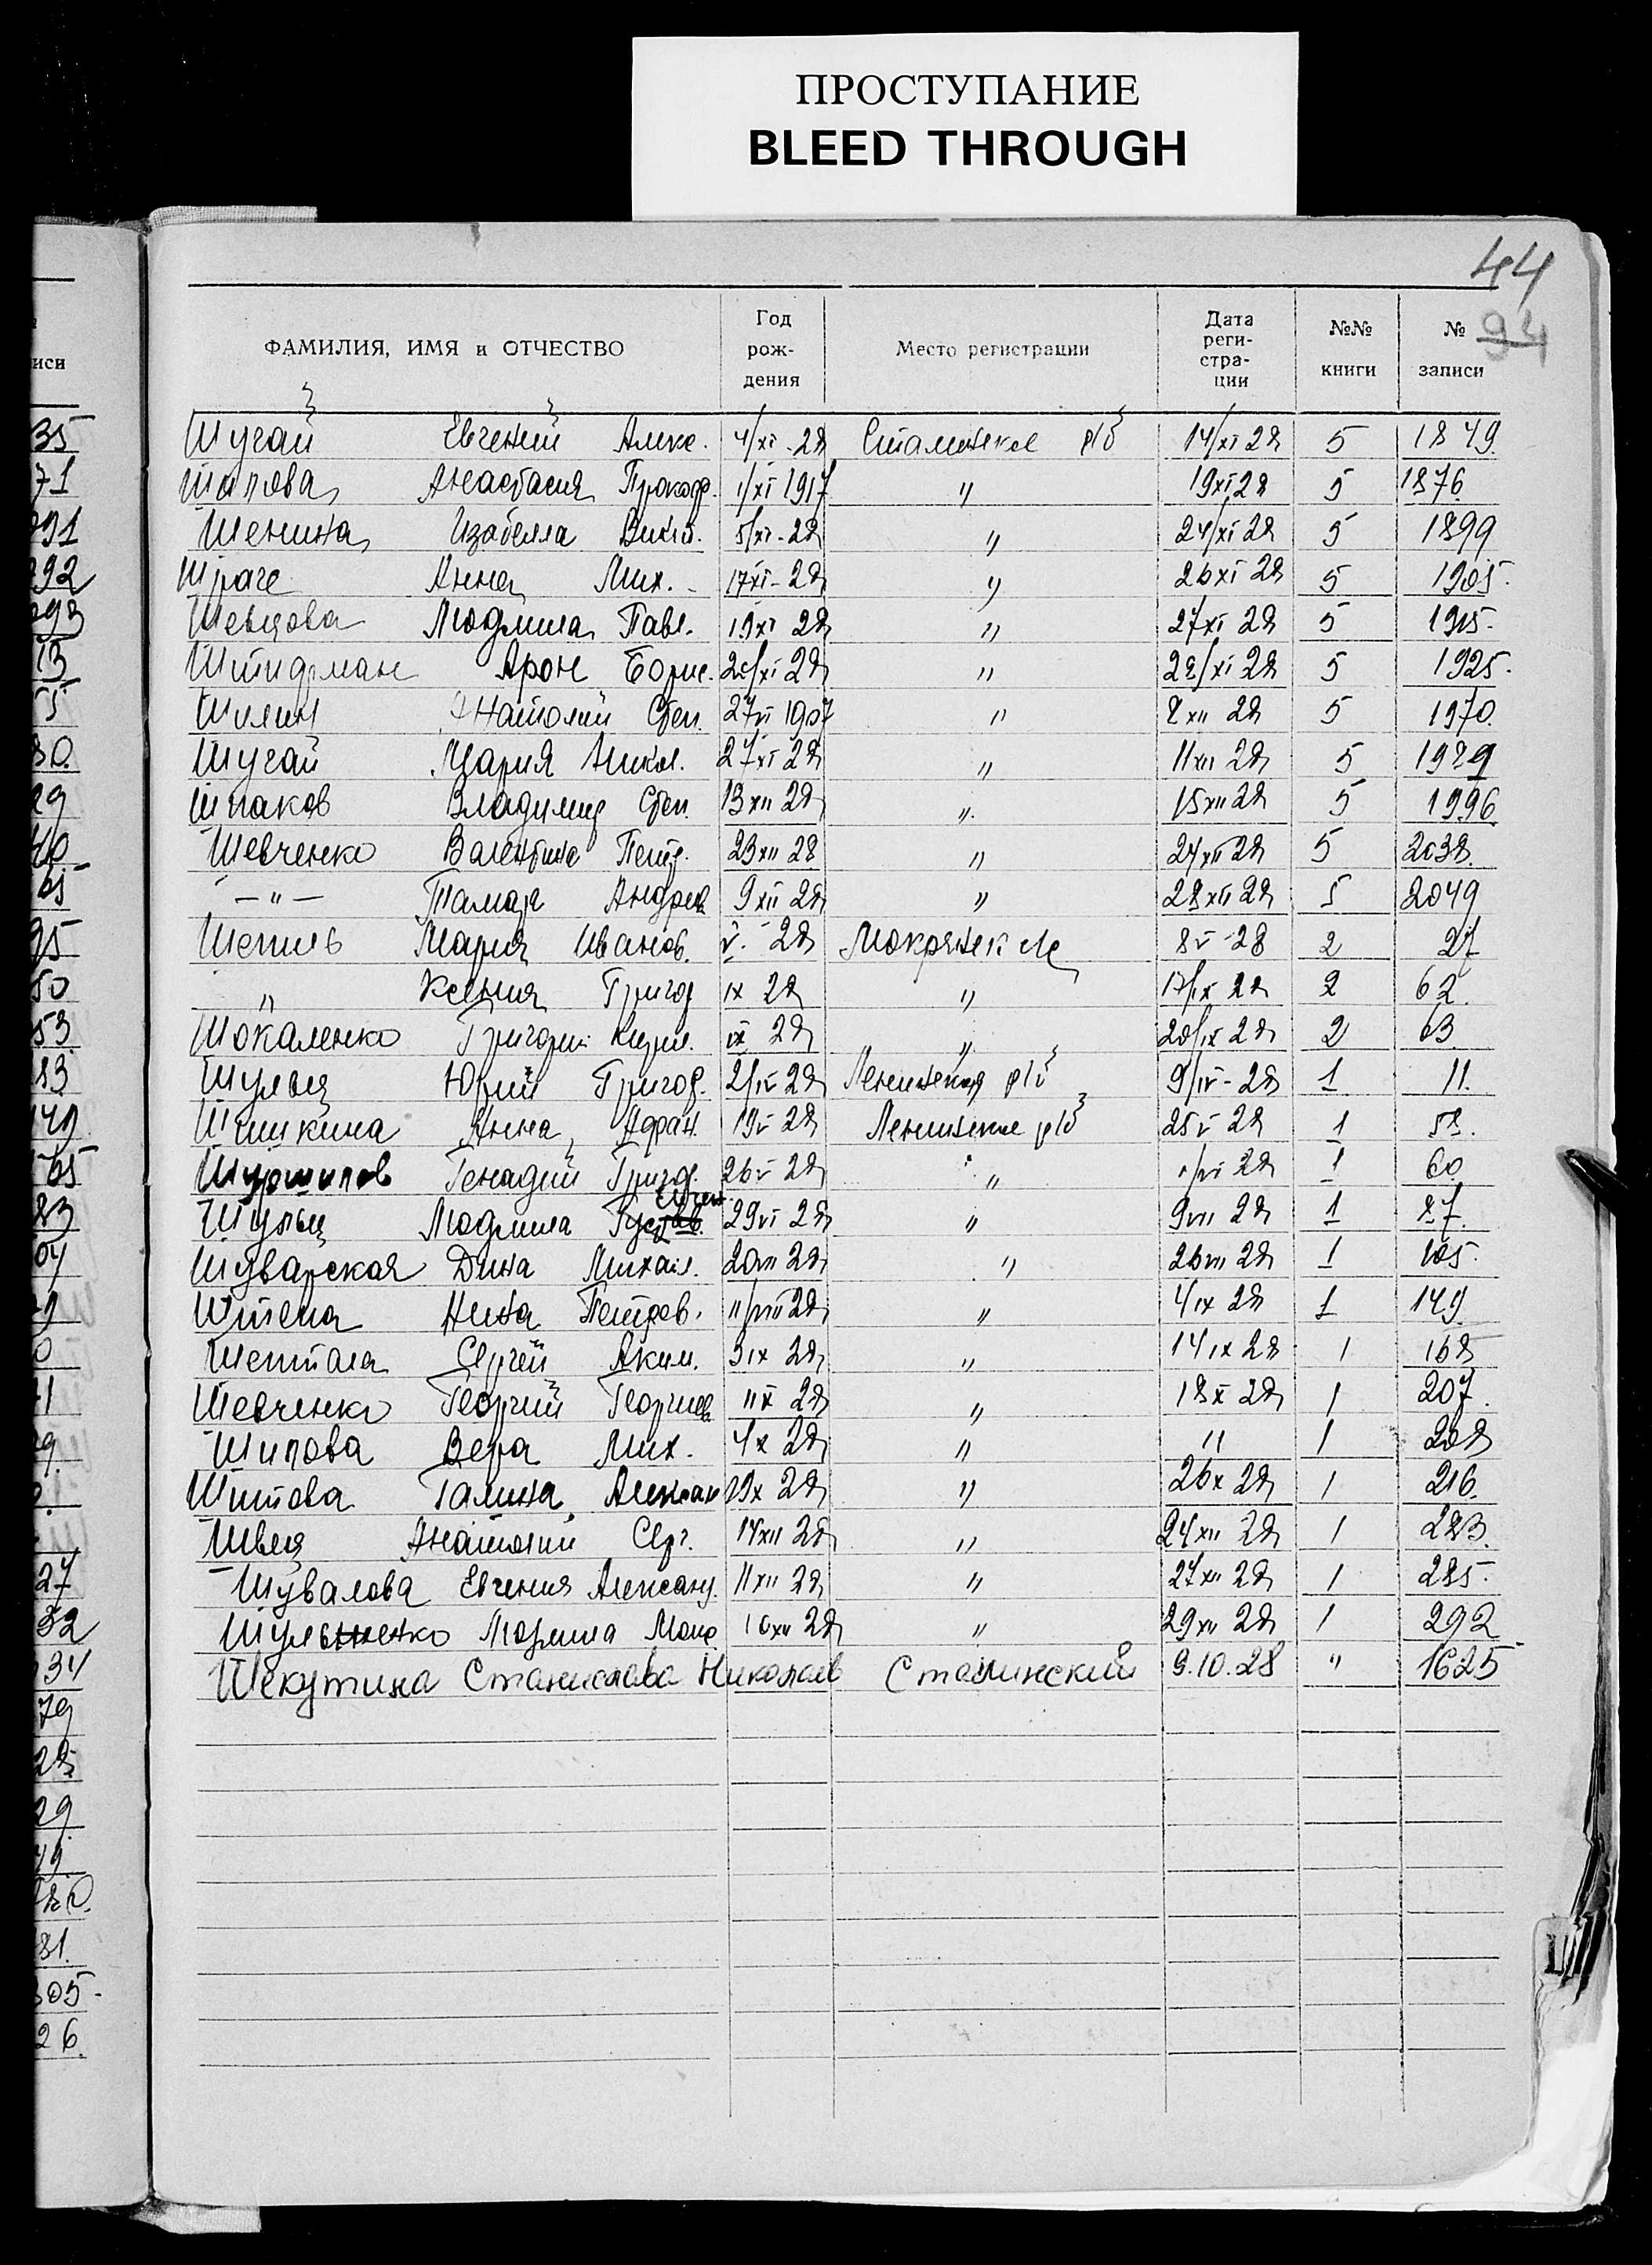 ПРОСТУПАНИЕ
BLEED THROUGH
44
94
ФАМИЛИЯ, ИМЯ и ОТЧЕСТВО Год рождения Место регистрации Дата регистрации №№ книги № записи
Шугай Евгений Алекс. 4/XI-28 Сталинское р/б 14/XI 28 5 1849.
Шапова Анастасия Прокоф. 1/XI 1917 " 19XI28 5 1876
Шенина Изабелла Викт. 5/XI-28 " 24/XI 28 5 1899
Шраге Анна Мих. 17XI-28 " 26XI 28 5 1905.
Шевцова Людмила Павл. 19XI 28 " 27XI 28 5 1915.
Штидрман Арон Борис. 20/XI 28 " 28/XI 28 5 1925.
Шилин Анатолий Степ. 27VI 1907 " 8XII 28 5 1970.
Шугай Мария Никол. 27XI 28 " 11XII 28 5 1989
Шпаков Владимир Степ. 13XII 28 " 15XII 28 5 1996.
Шевченко Валентина Петр. 23XII 28 " 24XII 28 5 2038.
— " — Тамара Андреев 9XII 28 " 28XII 28 5 2049
Шепиль Мария Иванов. V.-28 Мокрянск 8V-28 2 27
" Ксения Григор IX 28 " 17/IX 28 2 62.
Шокаленко Григорий Кирил. IX 28 " 20/IX 28 2 63
Шульц Юрий Григор. 2/IV 28 Ленинская р/б 9/IV-28 1 11.
Шишкина Анна Афан. 19V 28 Ленинское р/б 25V 28 1 58.
Шуршилов Генадий Григор. 26V 28 " /VI 28 1 60
Шульц Людмила Густав. 29VI 28 " 9VII 28 1 87.
Шуварская Дина Михаил. 20VII 28 " 26VII 28 1 105.
Штепа Нина Петров. 11/VIII 28 " 4IX 28 1 149
Шептала Сергей Аким. 3IX 28 " 14IX 28 1 168
Шевченко Георгий Георгиев 11X 28 " 18X 28 1 207.
Шипова Вера Мих. 4X 28 " " 1 208
Шитова Галина Алексан 19X 28 " 26X 28 1 216.
Швец Анатолий Серг. 14XII 28 " 24XII 28 1 283.
Шувалова Евгения Александ. 11XII 28 " 27XII 28 1 285.
Людмила 16XII 28 " 29XII 28 1 292
Шекутина Станислава Николаев Сталинский 9.10.28 " 1625